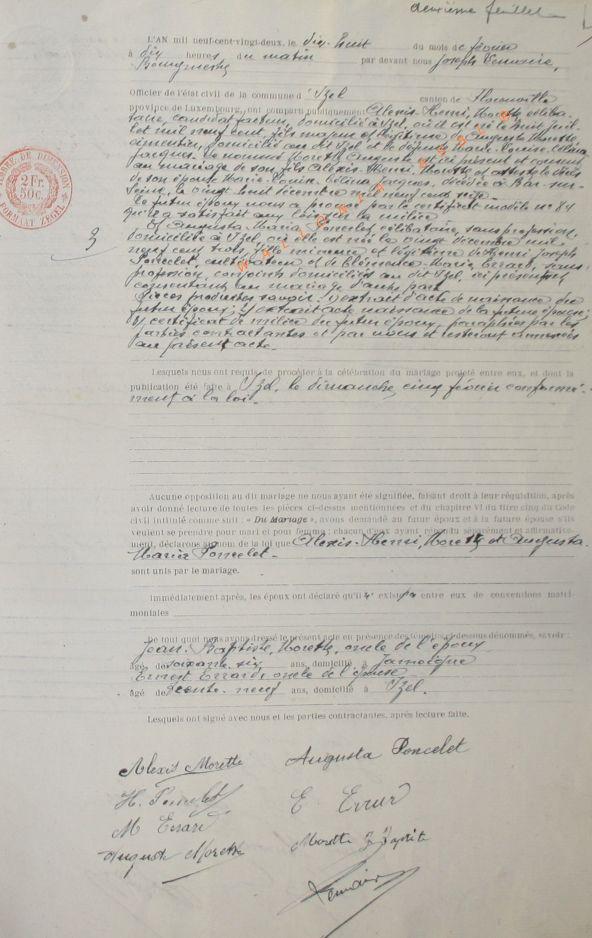 deuxième feuillet
L'AN mil neuf-cent-vingt-deux, le dix-huit du mois de février
à dix heures du matin par devant nous Joseph Lemaire,
Bourgmestre
Officier de l'état civil de la commune d'Izel canton de Florenville
province de Luxembourg, ont comparu publiquement Alexis Henri Morette céliba-
taire, candidat facteur, domicilié à Izel où il est né le huit juil-
let mil neuf cent, fils majeur et légitime de Auguste Morette
domicilié au dit Izel et de défunte Marie Louise
Jacques. Le nommé Morette Auguste ici présent et consent
au mariage de son fils Alexis Henri Morette et atteste le décès
de son épouse Marie Louise Jacques, décédée à Bar-sur-
Seine, le vingt huit
Le futur époux nous a prouvé par le certificat modèle n° 84
qu'il a satisfait aux lois sur la milice
3
Et Augusta Maria Poncelet, célibataire, sans profession,
domiciliée à Izel, où elle est née le vingt décembre mil
neuf cent trois, fille mineure et légitime de Henri Joseph
Poncelet, cultivateur et de Marie Errard, sans
profession, conjoints domiciliés au dit Izel, ici présents et
consentants au mariage d'autre part.
Pièces produites savoir: 1) extrait d'acte de naissance du
futur époux; 2) extrait acte naissance de la future épouse;
3) certificat de milice du futur époux, paraphées par les
parties contractantes et par nous et resteront annexées
au présent acte.
TIMBRE DE DIMENSION
2 Fr. 50c.
FORMAAT ZEGEL
Lesquels nous ont requis de procéder à la célébration du mariage projeté entre eux, et dont la
publication été faite à Izel, le dimanche, cinq février conformé-
ment à la loi.
Aucune opposition au dit mariage ne nous ayant été signifiée, faisant droit à leur réquisition, après
avoir donné lecture de toutes les pièces ci-dessus mentionnées et du chapitre VI du titre cinq du Code
civil intitulé comme suit : « Du Mariage », avons demandé au futur époux et à la future épouse s'ils
veulent se prendre pour mari et pour femme : chacun d'eux ayant répondu séparément et affirmative-
ment, déclarons au nom de la loi que Alexis-Henri, Morette et Augusta-
Maria Poncelet-
sont unis par le mariage.
Immédiatement après, les époux ont déclaré qu'il n'existe pas entre eux de conventions matri-
moniales
De tout quoi nous avons dressé le présent acte en présence des témoins ci-dessous dénommés, savoir :
Jean-Baptiste, Morette, oncle de l'époux
âgé de soixante six ans, domicilié à Jamoigne
Ernest Errard, oncle de l'épouse
âgé de trente-neuf ans, domicilié à Izel.
Lesquels ont signé avec nous et les parties contractantes, après lecture faite.
Alexis Morette Augusta Poncelet
H. Poncelet E Errard
M Errard
Auguste Morette Morette J Baptiste
Lemaire